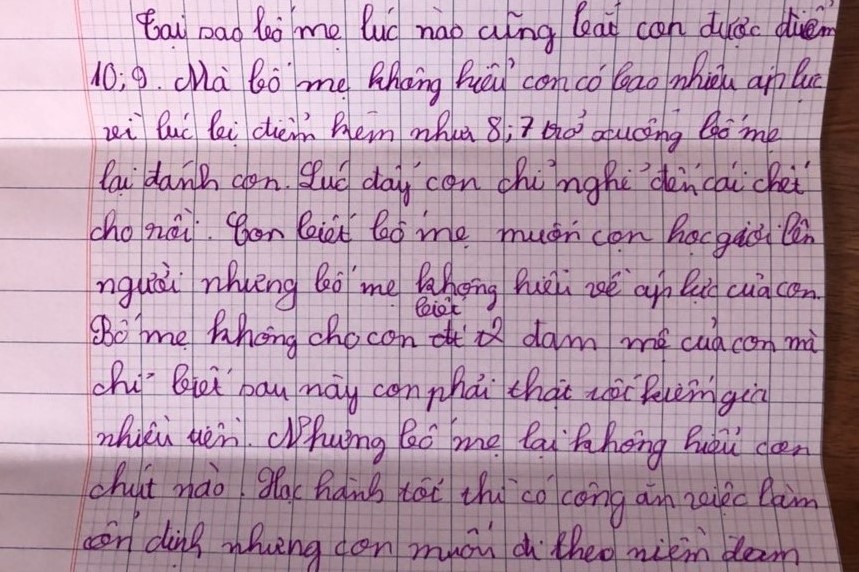 Tại sao bố mẹ lúc nào cũng bắt con được điểm
10; 9. Mà bố mẹ không hiểu con có bao nhiêu áp lực
vì lúc bị điểm kém như 8; 7 trở xuống bố mẹ
lại đánh con. Lúc đấy con chỉ nghĩ đến cái chết
cho rồi. Con biết bố mẹ muốn con học giỏi lên
người nhưng bố mẹ không hiểu về áp lực của con.
Bố mẹ không cho con biết đam mê của con mà
chỉ biết sau này con phải thật tốt kiếm
nhiều tiền. Nhưng bố mẹ lại không hiểu con
chút nào. Học hành tốt thì có công ăn việc làm
ổn định nhưng con muốn đi theo niềm đam